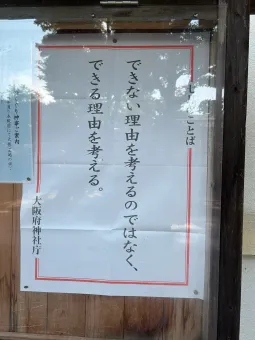 ことば
できない理由を考えるのではなく、
できる理由を考える。
大阪府神社庁